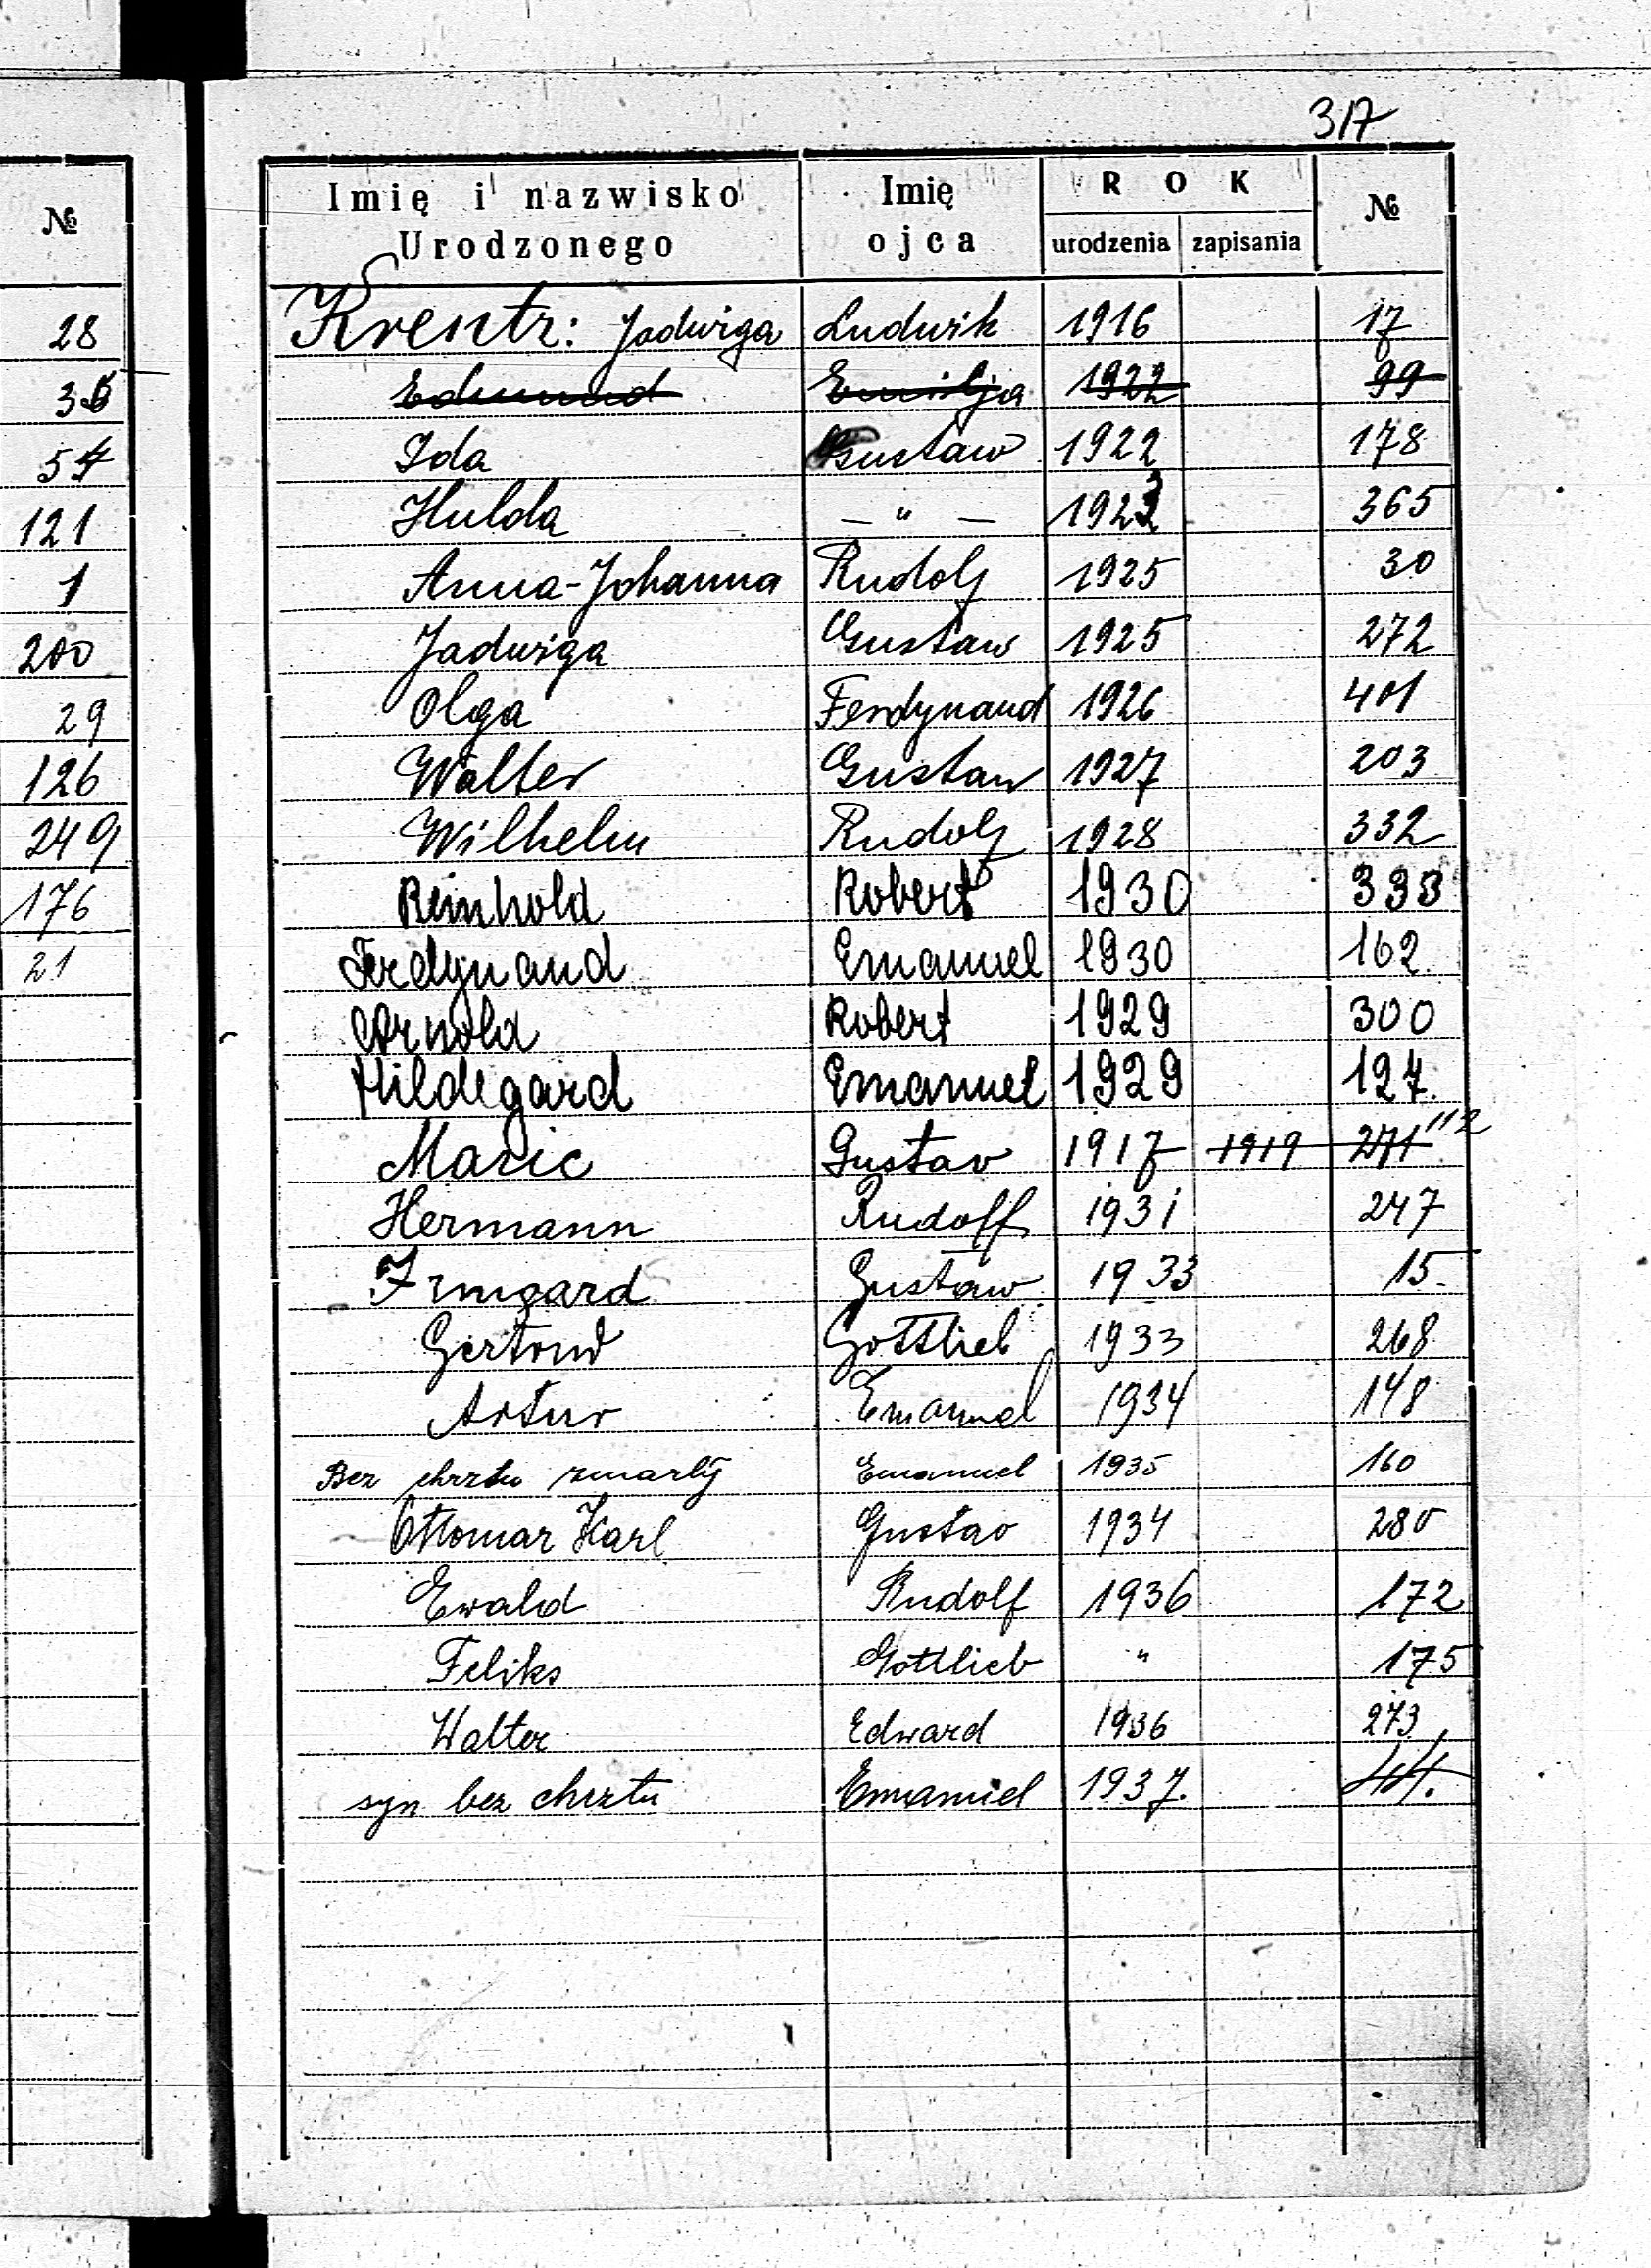 317
№
28
36
54
121
1
200
29
126
249
176
21
Imię i nazwisko Urodzonego | Imię ojca | ROK urodzenia | zapisania | №
Krentz: Jadwiga Ludwik 1916 17
Edmund Emilja 1922 99
Ida Gustaw 1922 178
Hulda — " — 1923 365
Anna-Johanna Rudolf 1925 30
Jadwiga Gustaw 1925 272
Olga Ferdynand 1926 401
Walter Gustaw 1927 203
Wilhelm Rudolf 1928 332
Reinhold Robert 1930 333
Ferdynand Emanuel 1930 162
Arnold Robert 1929 300
Hildegard Emanuel 1929 127
Marie Gustav 1917 1919 271 112
Hermann Rudolf 1931 247
Irmgard Gustaw 1933 15
Gertrud Gottlieb 1933 268
Artur Emanuel 1934 148
Bez chrztu zmarły Emanuel 1935 160
Ottomar Karl Gustav 1934 280
Ewald Rudolf 1936 172
Feliks Gottlieb " 175
Walter Edward 1936 273
syn bez chrztu Emanuel 1937.